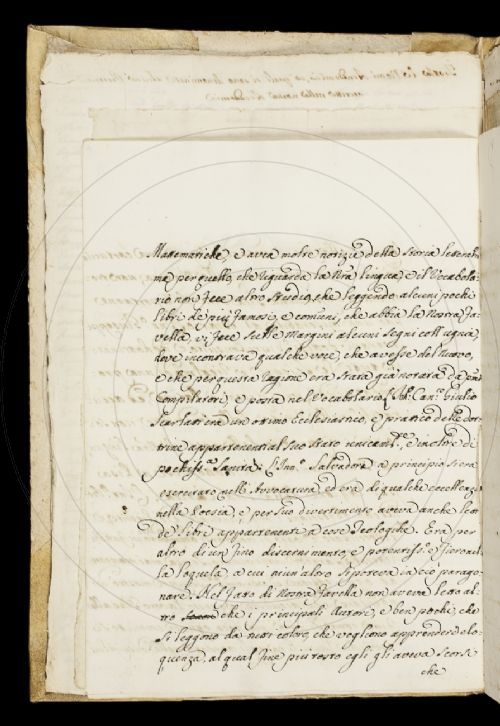 Mattematiche, e avea molte notizie della storia letteraria
ma per quello, che riguarda la Nra lingua, e il Vocabola-
rio non fece altro studio, che leggendo alcuni pochi
libri de' più famosi, e comuni, che abbia la Nostra fa-
vella, vi fece sulle Margini alcuni segni coll'acqua,
dove incontrava qualche voce, che avesse del nuovo,
e che per questa ragione era stata già notata da
Compilatori, e posta nel Vocabolario. Can.co Giulio
Scarlatti era un ottimo Ecclesiastico, e pratico delle dot-
trine appartenenti al suo stato, e inoltre di
pochiss.a Sanità. Salvadori a principio si era
esercitato nell'Avvocatura, ed era di qualche eccellenza
nella Poesia, e per suo divertimento aveva anche letti
de' libri appartenenti a cose Teologiche. Era per
altro di un fino discernimento, e potentiss.e
la loquela, a cui niun'altro si poteva in ciò parago-
nare. Nel fatto di Nostra favella non aveva letto al-
tro che i principali Autori, e ben pochi, che
si leggono da tutti coloro, che vogliono apprendere elo-
quenza, al qual fine più tosto egli gli aveva scorsi
che